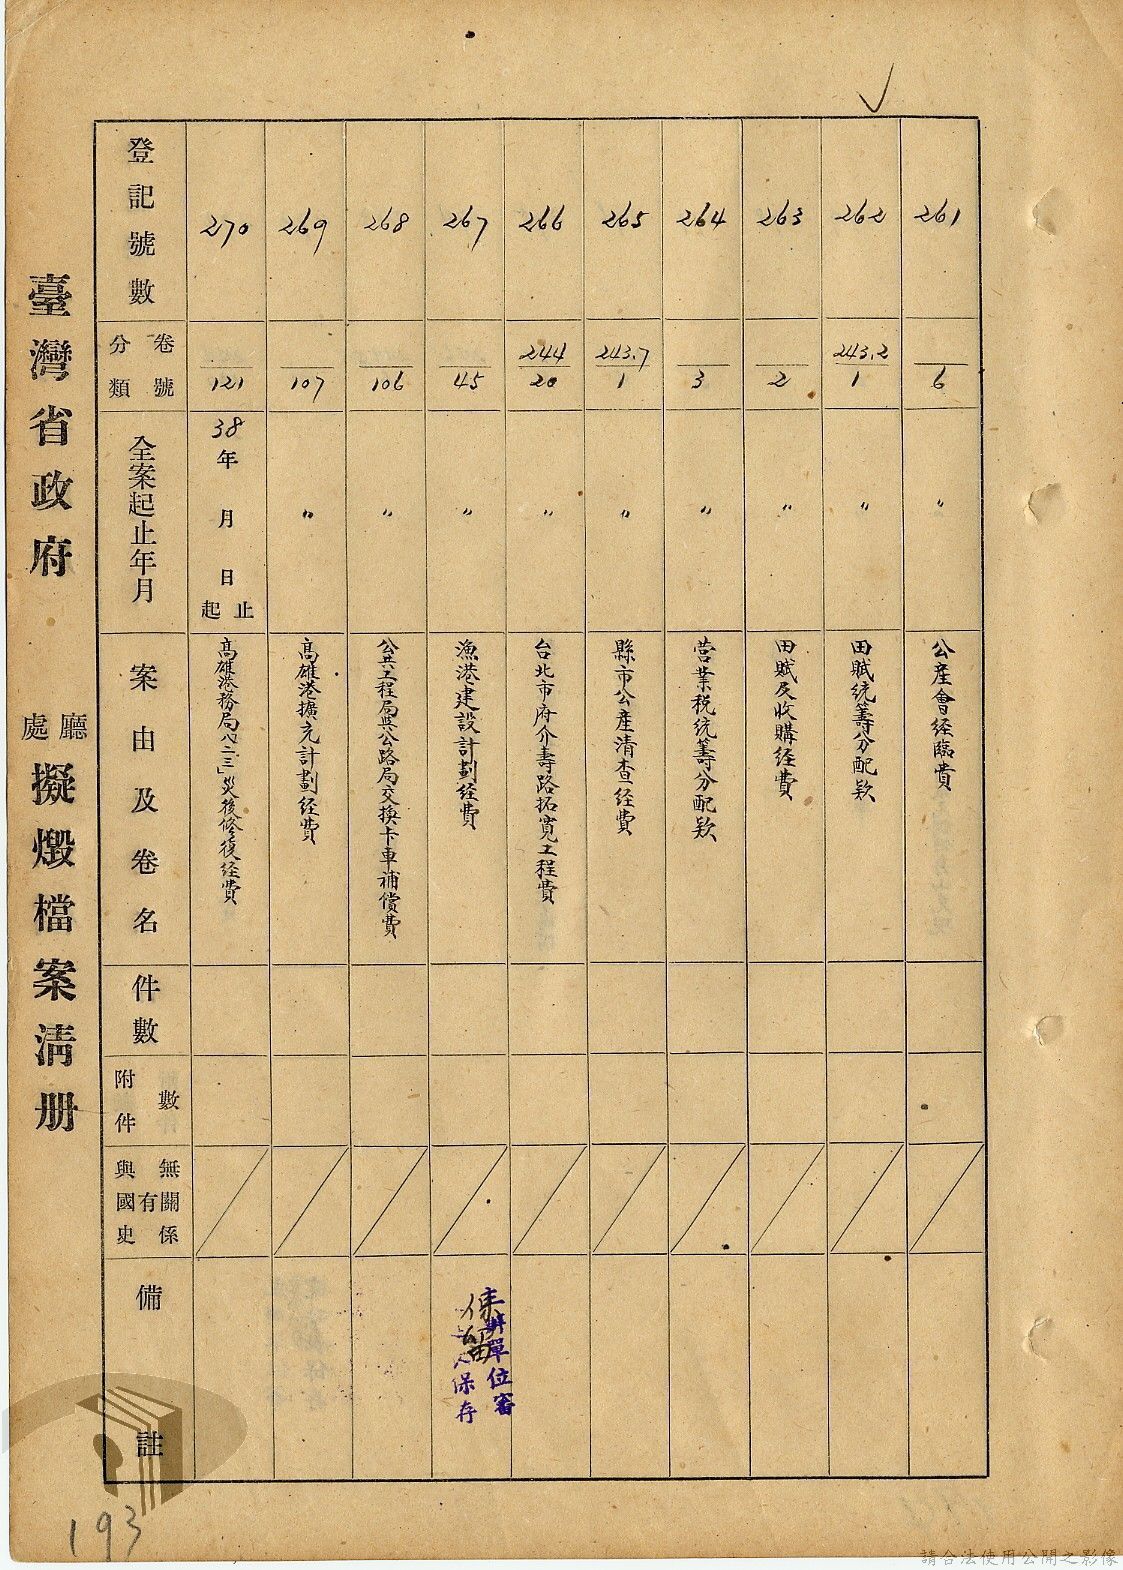 臺灣省政府 廳處 擬燬檔案清册
登記號數
分類 卷號
全案起止年月
案由及卷名
件數
附件 數
與國史 有無關係
備註
270
121
38年 月 日 起止
高雄港務局「八二三」災後修復经費
269
107
〃
高雄港擴充計劃经費
268
106
〃
公共工程局與公路局交換卡車補償費
267
45
〃
漁港建設計劃经費
保留
主辦單位審
保存
266
244
20
〃
台北市府介壽路拓寬工程費
265
243.7
1
〃
縣市公產清查经費
264
3
〃
营業税统籌分配欵
263
2
〃
田賦及收購经費
262
243.2
1
〃
田賦统籌分配欵
261
6
〃
公產會经臨費
193
請合法使用公開之影像